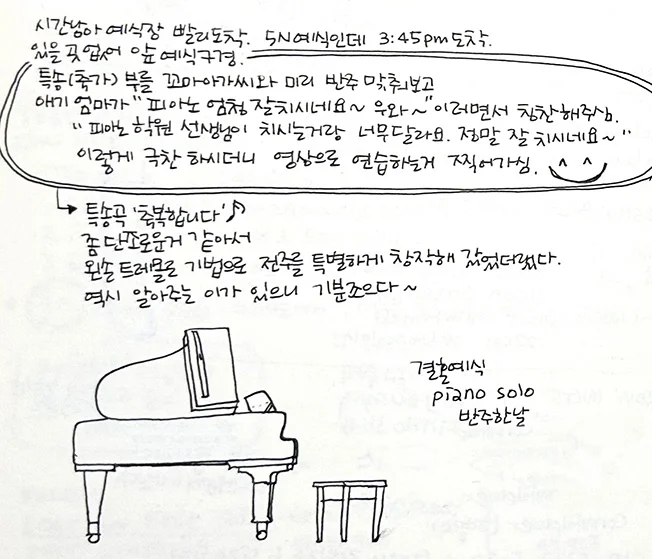 시간남아 예식장 빨리도착. 5시예식인데 3:45pm도착.
있을 곳 없어 앞 예식구경.
특송(축가) 부를 꼬마아가씨와 미리 반주 맞춰보고
애기 엄마가 "피아노 엄청 잘치시네요~ 우와~" 이러면서 칭찬해주심.
"피아노 학원 선생님이 치시는거랑 너무달라요. 정말 잘 치시네요~"
이렇게 극찬 하시더니 영상으로 연습하는거 찍어가심. ^ ^
→ 특송곡 '축복합니다'♪
좀 단조로운거 같아서
왼손 트레몰로 기법으로 전주를 특별하게 창작해 갔었더랬다.
역시 알아주는 이가 있으니 기분조으다~
결혼예식
piano solo
반주한날